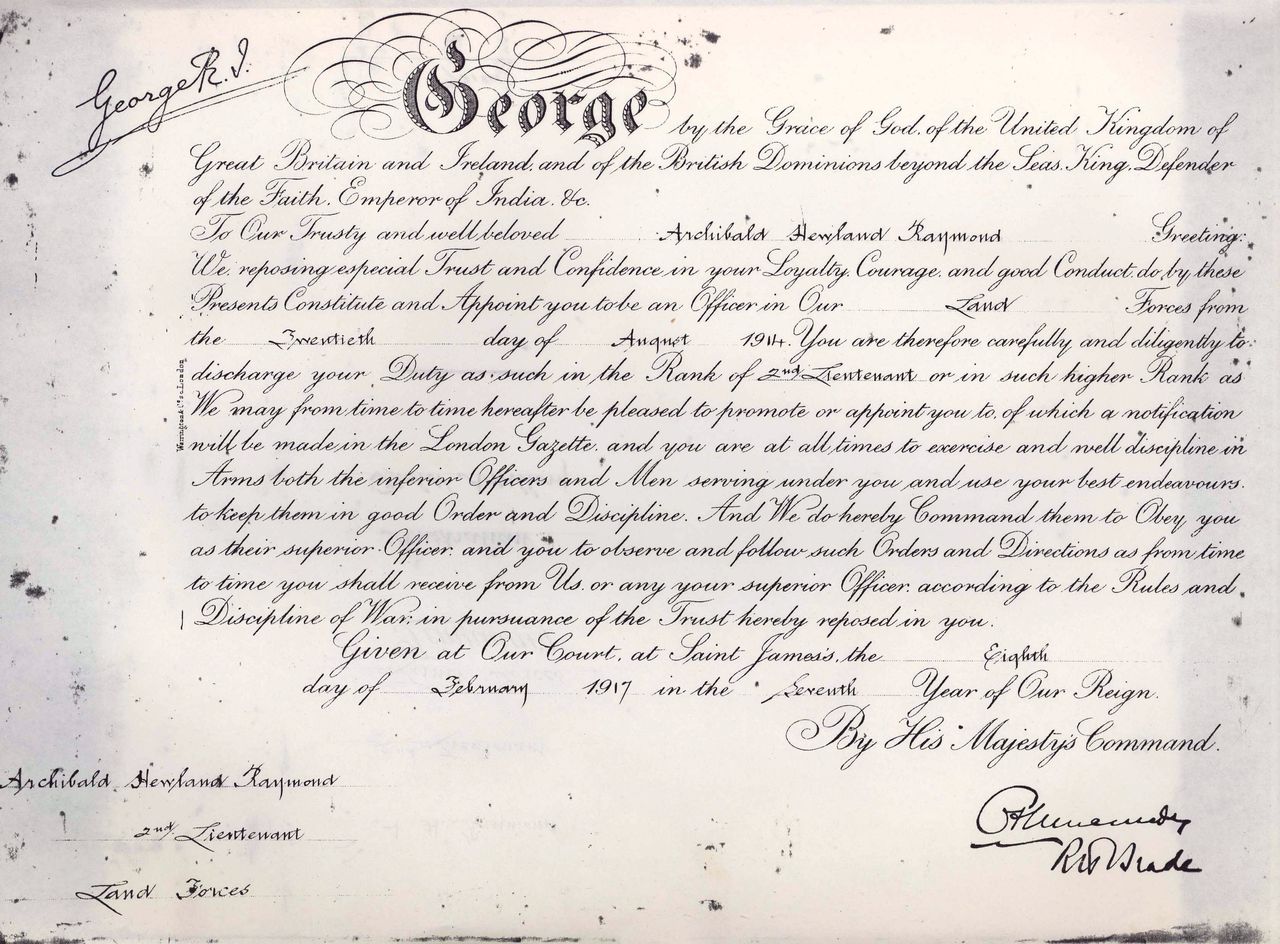 George R. I.
George by the Grace of God, of the United Kingdom of
Great Britain and Ireland, and of the British Dominions beyond the Seas, King, Defender
of the Faith, Emperor of India, &c.
To Our Trusty and well beloved Archibald Hewland Raymond Greeting:
We, reposing especial Trust and Confidence in your Loyalty, Courage, and good Conduct, do by these
Presents Constitute and Appoint you to be an Officer in Our Land Forces from
the Twentieth day of August 1914. You are therefore carefully and diligently to
discharge your Duty as such in the Rank of 2nd Lieutenant or in such higher Rank as
We may from time to time hereafter be pleased to promote or appoint you to, of which a notification
will be made in the London Gazette, and you are at all times to exercise and well discipline in
Arms both the inferior Officers and Men serving under you and use your best endeavours
to keep them in good Order and Discipline. And We do hereby Command them to Obey you
as their superior Officer, and you to observe and follow such Orders and Directions as from time
to time you shall receive from Us, or any your superior Officer, according to the Rules and
Discipline of War, in pursuance of the Trust hereby reposed in you.
Given at Our Court, at Saint James's, the Eighth
day of February 1917 in the Seventh Year of Our Reign.
By His Majesty's Command.
Archibald Hewland Raymond
2nd Lieutenant
Land Forces
R H Brade